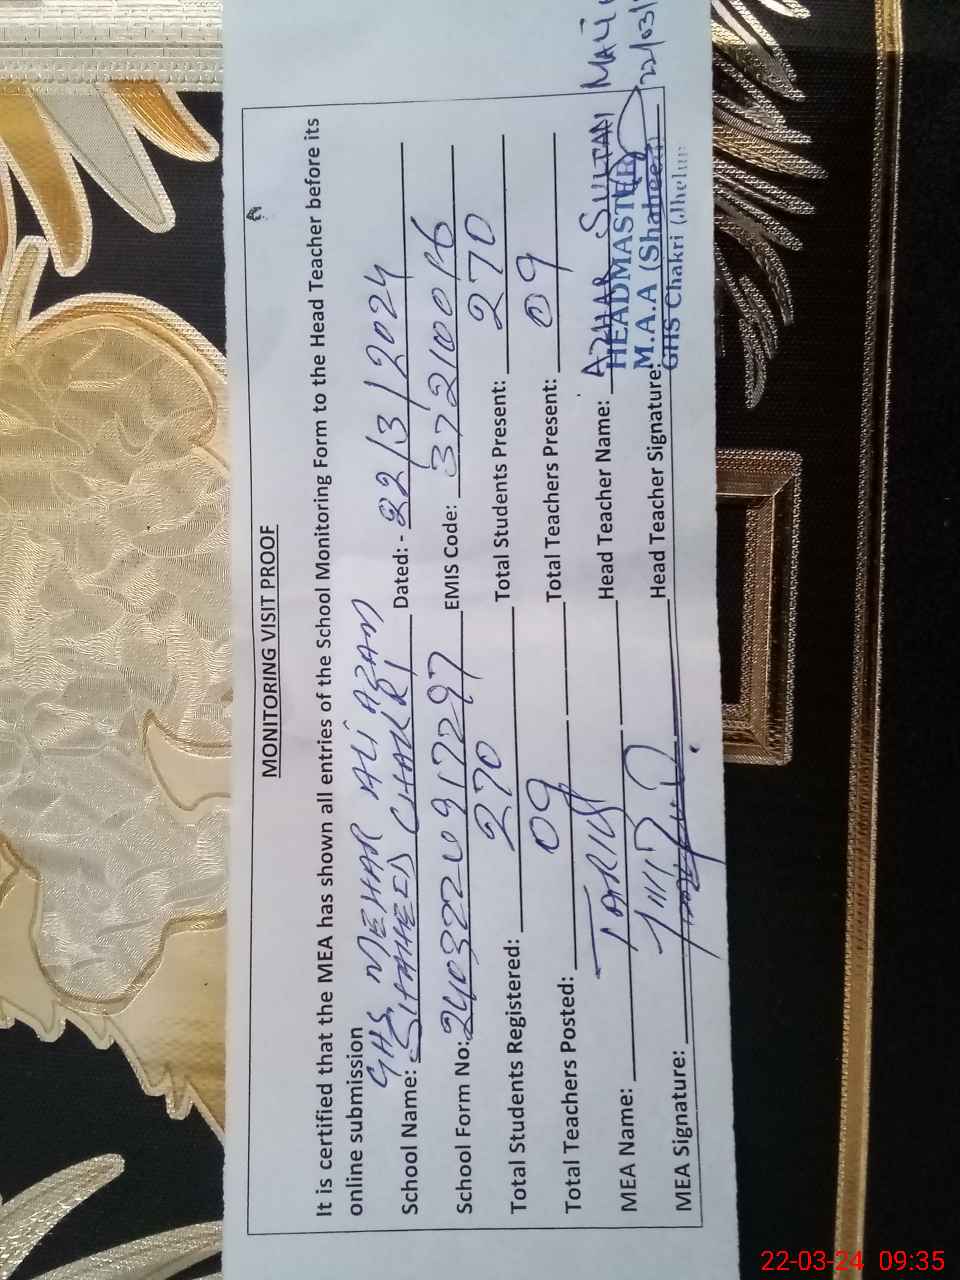 MONITORING VISIT PROOF
It is certified that the MEA has shown all entries of the School Monitoring Form to the Head Teacher before its
online submission
GHS MEHAR ALI AZAM
School Name: SHAHEED CHAKRI Dated: - 22/3/2024
School Form No: 2403220917297 EMIS Code: 37210016
Total Students Registered: 270 Total Students Present: 270
Total Teachers Posted: 09 Total Teachers Present: 09
MEA Name: TARIQ Head Teacher Name: AZHAR SULTAN
HEADMASTER
MEA Signature: Head Teacher Signature: M.A.A (Shaheed)
GHS Chakri (Jhelum
22/03/
22-03-24 09:35